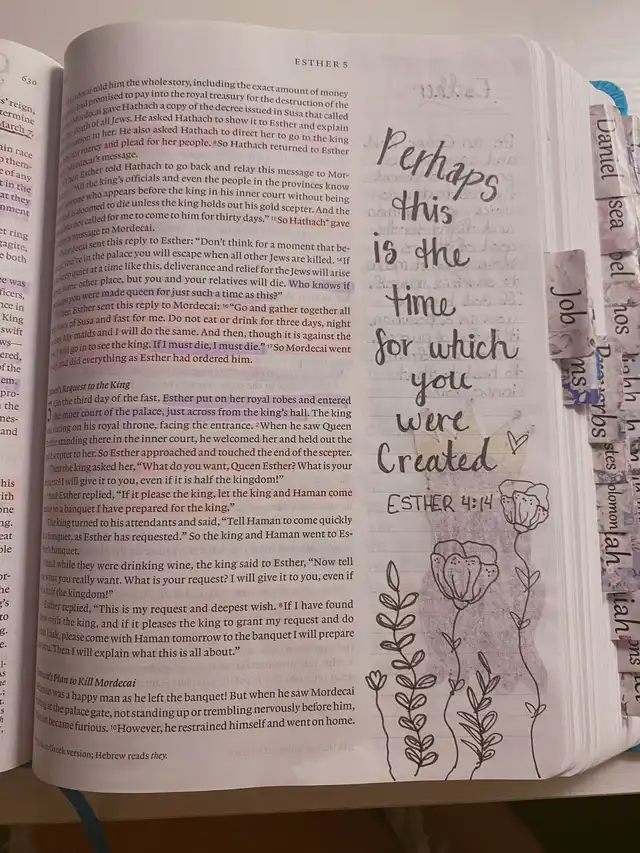 630
s' reign,
termine
March 7,
ain race
of any
t in the
at they
nment
et ring
agite,
e both
ee was
ficers,
nce in
King
swift
ws—
ered,
em,
pro-
the
mes-
and
his
with
one
ng.
eat
ESTHER 5
told him the whole story, including the exact amount of money
promised to pay into the royal treasury for the destruction of the
Mordecai gave Hathach a copy of the decree issued in Susa that called
death of all Jews. He asked Hathach to show it to Esther and explain
to her. He also asked Hathach to direct her to go to the king
mercy and plead for her people. ⁹So Hathach returned to Esther
Mordecai's message.
Esther told Hathach to go back and relay this message to Mor-
"All the king's officials and even the people in the provinces know
anyone who appears before the king in his inner court without being
is doomed to die unless the king holds out his gold scepter. And the
not called for me to come to him for thirty days." ¹²So Hathach* gave
message to Mordecai.
Mordecai sent this reply to Esther: "Don't think for a moment that be-
you're in the palace you will escape when all other Jews are killed. ¹⁴If
quiet at a time like this, deliverance and relief for the Jews will arise
other place, but you and your relatives will die. Who knows if
you were made queen for just such a time as this?"
Esther sent this reply to Mordecai: ¹⁶"Go and gather together all
of Susa and fast for me. Do not eat or drink for three days, night
My maids and I will do the same. And then, though it is against the
go in to see the king. If I must die, I must die." ¹⁷So Mordecai went
and did everything as Esther had ordered him.
Request to the King
5 On the third day of the fast, Esther put on her royal robes and entered
the inner court of the palace, just across from the king's hall. The king
on his royal throne, facing the entrance. ²When he saw Queen
standing there in the inner court, he welcomed her and held out the
scepter to her. So Esther approached and touched the end of the scepter.
the king asked her, "What do you want, Queen Esther? What is your
I will give it to you, even if it is half the kingdom!"
Esther replied, "If it please the king, let the king and Haman come
to a banquet I have prepared for the king."
The king turned to his attendants and said, "Tell Haman to come quickly
banquet, as Esther has requested." So the king and Haman went to Es-
banquet.
And while they were drinking wine, the king said to Esther, "Now tell
what you really want. What is your request? I will give it to you, even if
the kingdom!"
Esther replied, "This is my request and deepest wish. ⁸If I have found
with the king, and if it pleases the king to grant my request and do
ask, please come with Haman tomorrow to the banquet I will prepare
Then I will explain what this is all about."
Plan to Kill Mordecai
Haman was a happy man as he left the banquet! But when he saw Mordecai
at the palace gate, not standing up or trembling nervously before him,
became furious. ¹⁰However, he restrained himself and went on home.
Greek version; Hebrew reads they.
Perhaps
this
is the
time
for which
you
were
Created
ESTHER 4:14
Job
Proverbs
Daniel
sea
hos